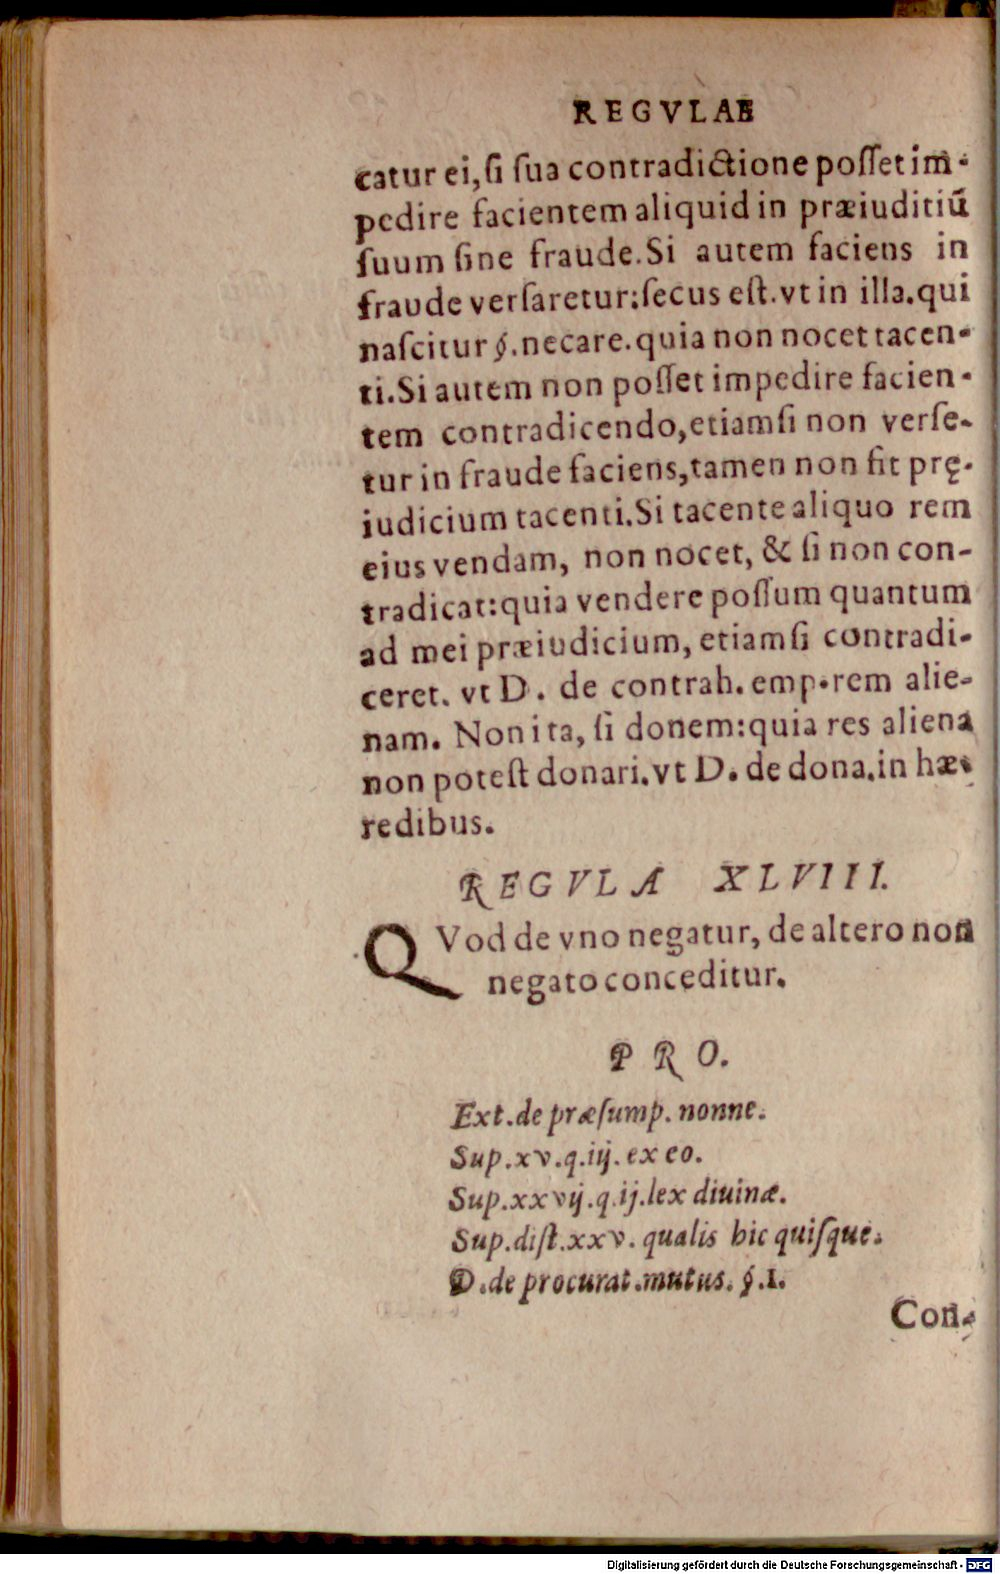 REGVLAE
catur ei, ſi ſua contradictione poſſet im-
pedire facientem aliquid in præiuditiũ
ſuum ſine fraude. Si autem faciens in
fraude verſaretur: ſecus eſt. vt in illa. qui
naſcitur §. necare. quia non nocet tacen-
ti. Si autem non poſſet impedire facien-
tem contradicendo, etiamſi non verſe-
tur in fraude faciens, tamen non fit prę-
iudicium tacenti. Si tacente aliquo rem
eius vendam, non nocet, & ſi non con-
tradicat: quia vendere poſſum quantum
ad mei præiudicium, etiamſi contradi-
ceret. vt D. de contrah. emp. rem alie-
nam. Non ita, ſi donem: quia res aliena
non poteſt donari. vt D. de dona. in hæ-
redibus.
REGVLA XLVIII.
QVod de vno negatur, de altero non
negato conceditur.
PRO.
Ext. de præſump. nonne.
Sup. xv. q. iij. ex eo.
Sup. xxvij. q. ij. lex diuinæ.
Sup. diſt. xxv. qualis hic quiſque.
D. de procurat. mutus. §. 1.
Con-
Digitalisierung gefördert durch die Deutsche Forschungsgemeinschaft - DFG